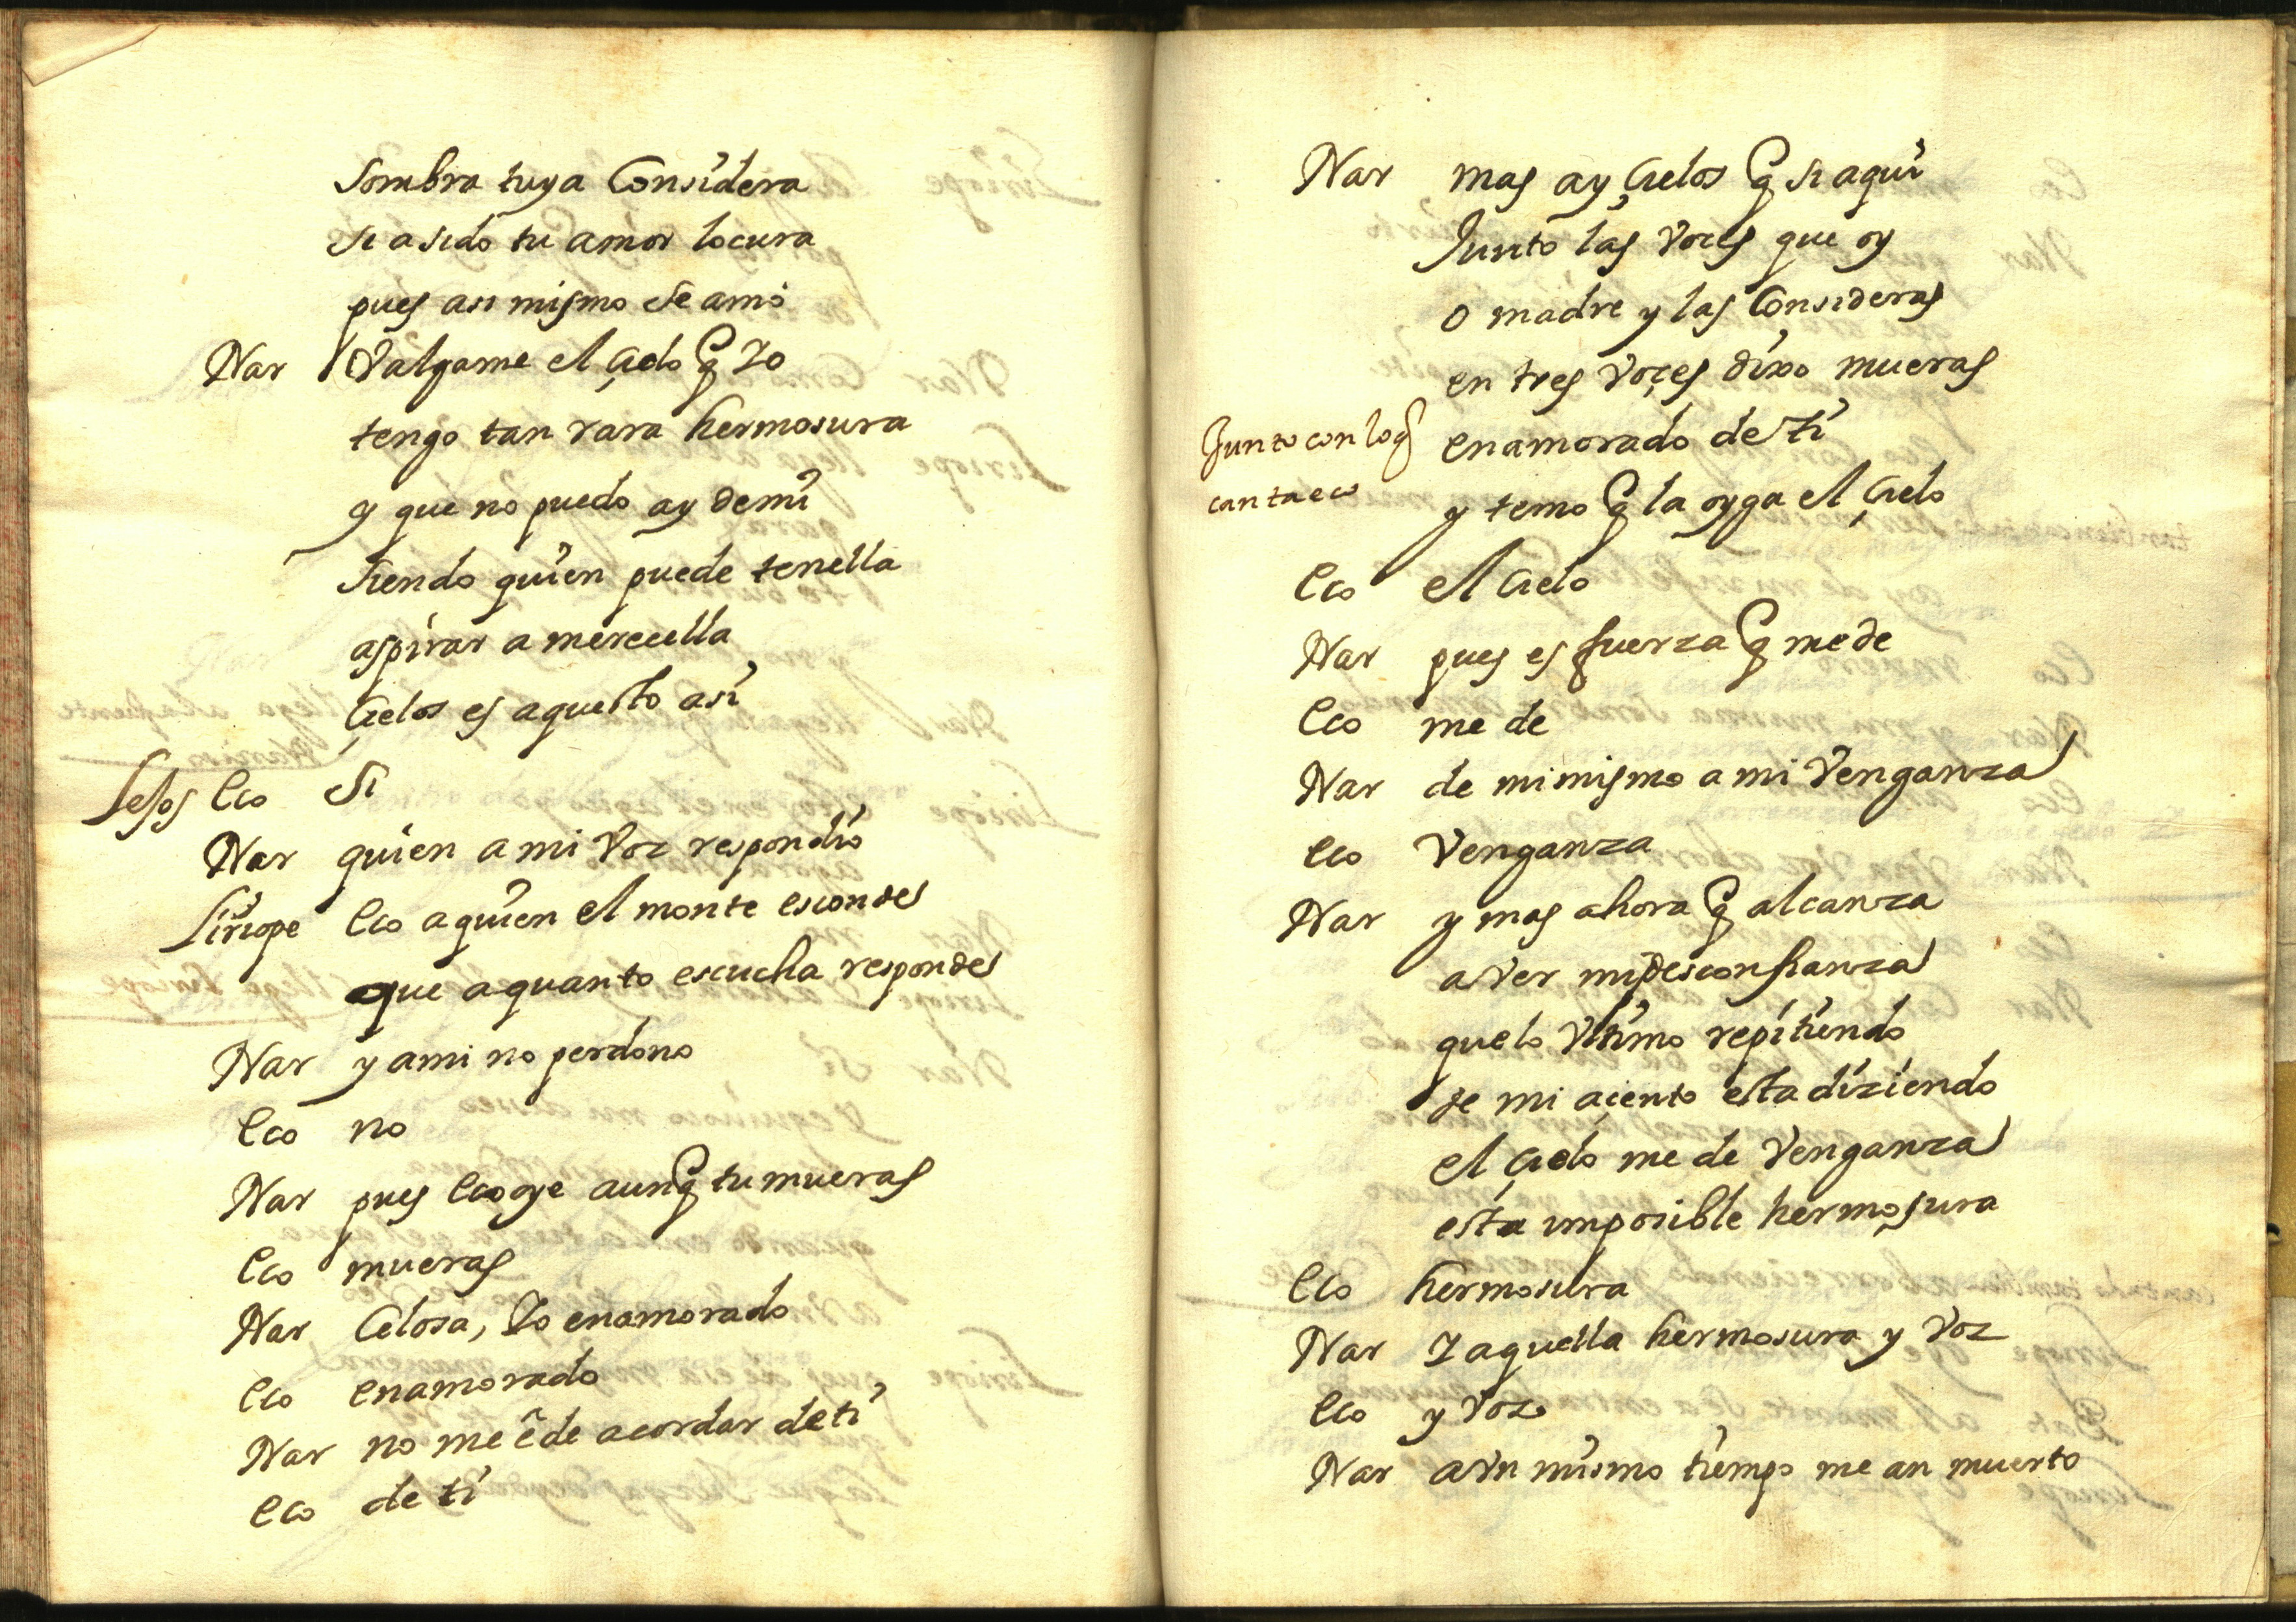 Sombra tuya Considera
si a sido tu amor locura
pues asi mismo se amò
Nar Valgame el çielo q̃ Yo
tengo tan rara hermosura
y que no puedo ay demi
siendo quien puede tenella
aspirar a merecella
çielos es aquesto asi
Lejos Eco Si
Nar quien a mi voz respondio
Liriope Eco a quien el monte esconde
que a quanto escucha responde
Nar y a mi no perdono
Eco no
Nar pues Eco oye aunq̃ tu mueras
Eco mueras
Nar Celosa, Yo enamorado
Eco enamorado
Nar no me ẽ de acordar de ti
Eco de ti
Nar mas ay çielos q̃ si aqui
Junto las voces que oy
o madre y las Consideras
en tres voçes dixo mueras
Junto con lo q̃ enamorado de ti
canta eco y temo q̃ la oyga el çielo
Eco el Cielo
Nar pues es fuerza q̃ me de
Eco me de
Nar de mi mismo a mi Venganza
Eco Venganza
Nar y mas ahora q̃ alcanza
a ver mi desconfianza
que lo Vltimo repitiendo
de mi açento esta diziendo
el çielo me de Venganza
esta imposible hermosura
Eco hermosura
Nar Y aquella hermosura y Voz
Eco y Voz
Nar a Vn mismo tiempo me an muerto